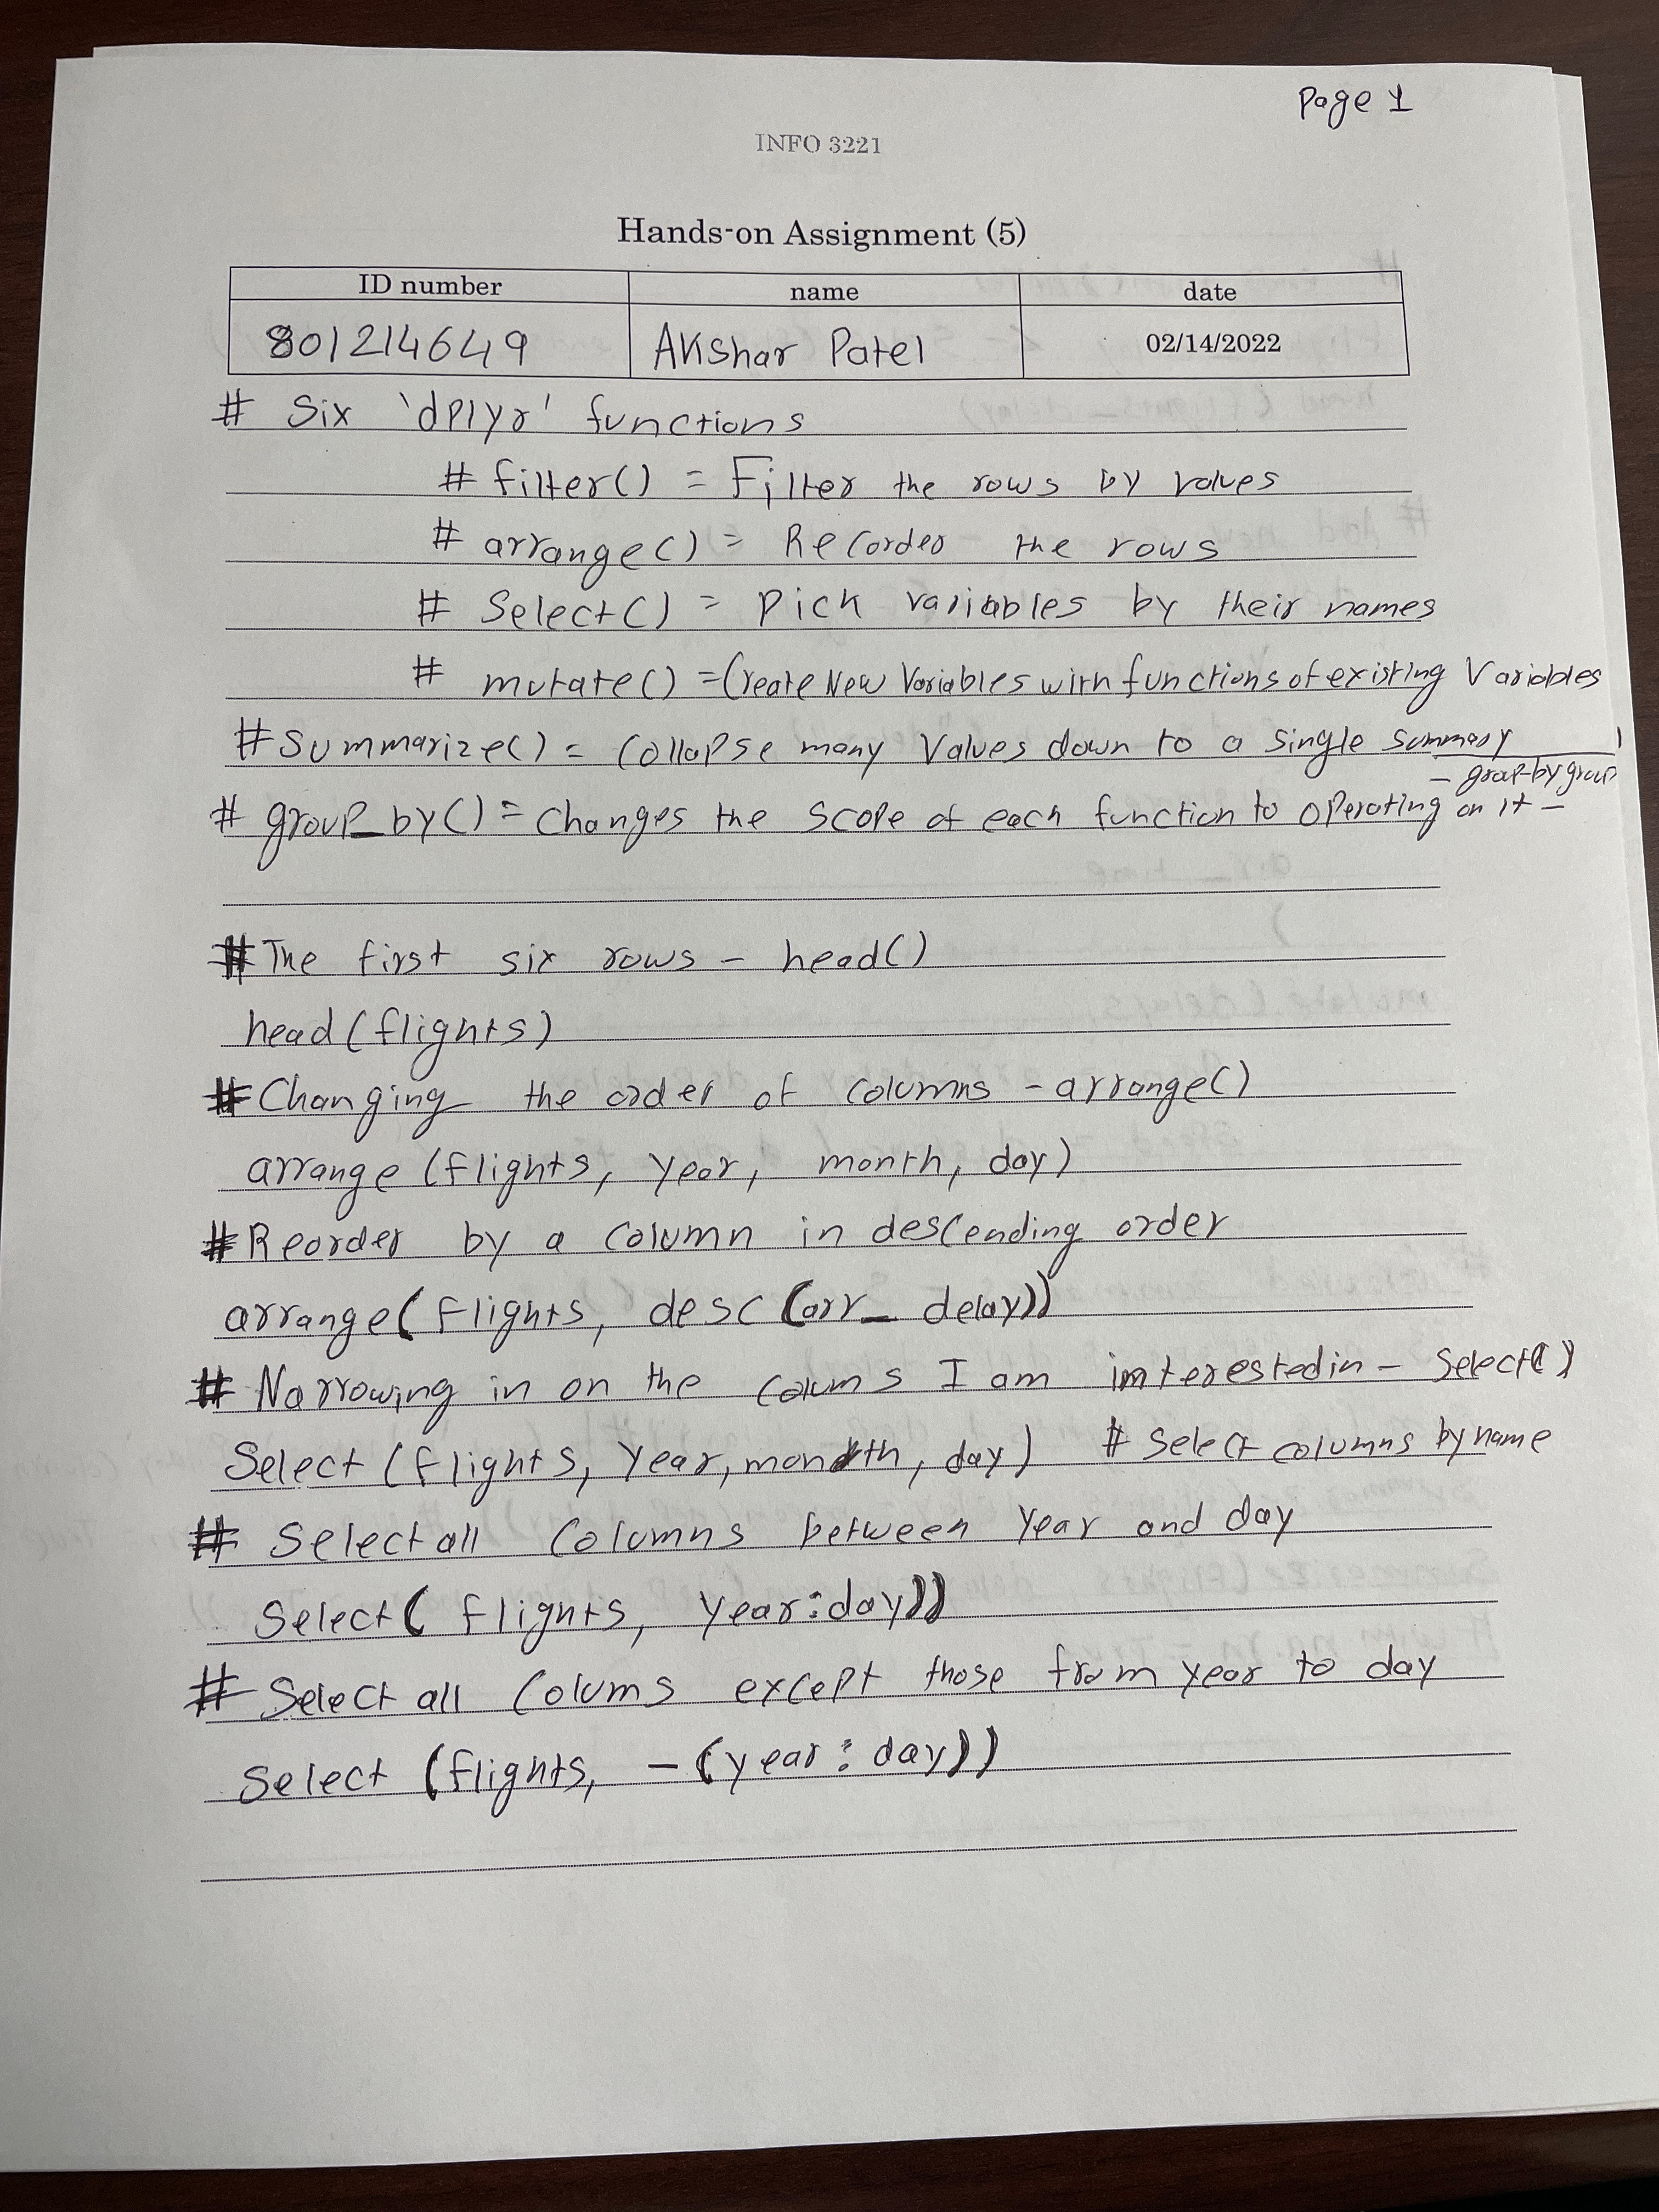 Page 1
INFO 3221
Hands-on Assignment (5)
ID number name date
801214649 Akshar Patel 02/14/2022
# Six 'dplyr' functions
# filter() = Filter the rows by values
# arrange() = Recorder the rows
# Select() = pick variables by their names
# mutate() = Create New Variables with functions of existing Variables
# Summarize() = Collapse many Values down to a single summary
- group-by group
# group_by() = Changes the scope of each function to operating on it -
# The first six rows - head()
head (flights)
# Changing the order of columns - arrange()
arrange (flights, year, month, day)
# Reorder by a column in descending order
arrange( flights, desc (arr_ delay))
# Narrowing in on the colums I am interested in - Select()
Select (flights, Year, month, day) # Select columns by name
# Select all Columns between Year and day
Select( flights, Year:day))
# Select all Colums except those from year to day
Select (flights, - (year : day))